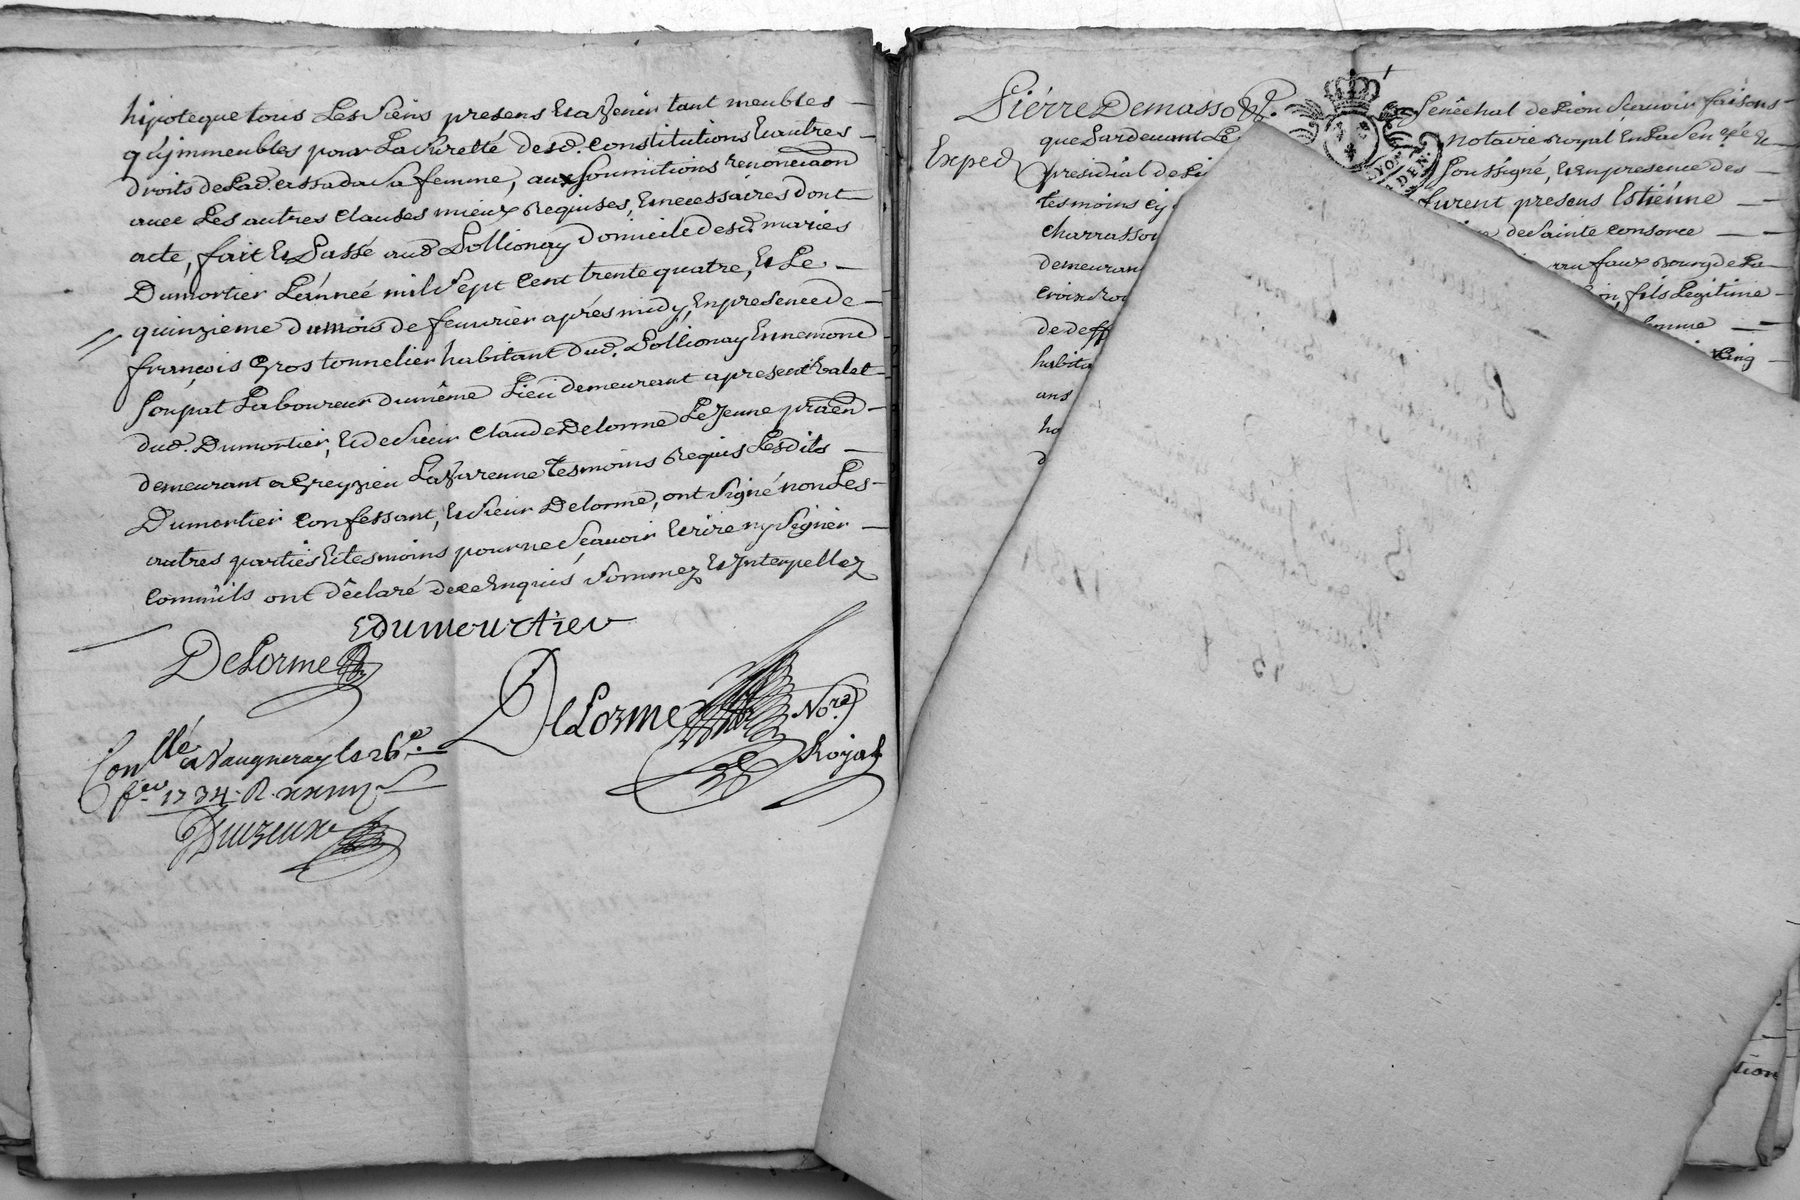 hipoteque tous Les siens presens et a venir tant meubles
qu'jmmeubles pour La sureté desd. constitutions et autres
droits de Lad. assada sa femme, aux soumitions renonciaon
avec Les autres clauses mieux requises, et necessaires dont
acte, fait et Passé aud Pollionay domicile desd. mariés
Dumortier L'année mil sept cent trente quatre, et Le
quinzieme du mois de feuvrier aprés midy, en presence de
françois Gros tonnelier habitant dud. Pollionay Ennemond
Laboureur du même Lieu demeurant a present valet
dud. Dumortier, et de sieur Claude Delorme Le Jeune praēn
demeurant a Greyzieu La Varenne tesmoins requis Lesdits
Dumortier confessant, et sieur Delorme, ont signé non Les
autres parties et tesmoins pour ne sçavoir Ecrire ny signer
comm'ils ont déclaré de ce Enquis, sommez et Interpellez
Edumourtier
DeLorme
DeLorme No.re
Royal
Conllé a Vaugneray le 26e.
fev 1734. R.
Pierre Demasso
Senêchal de Lion sçavoir faisons
Exped
que Pardevant Le
notaire Royal En La Sen.
presidial de Li
soussigné, et En presence des
tesmoins cy
furent presens Estiénne
charrasson
de Sainte Consorce
demeuran
au faux Bourg de La
croix Rou
fils Legitime
de deff
habita
cinq
ans